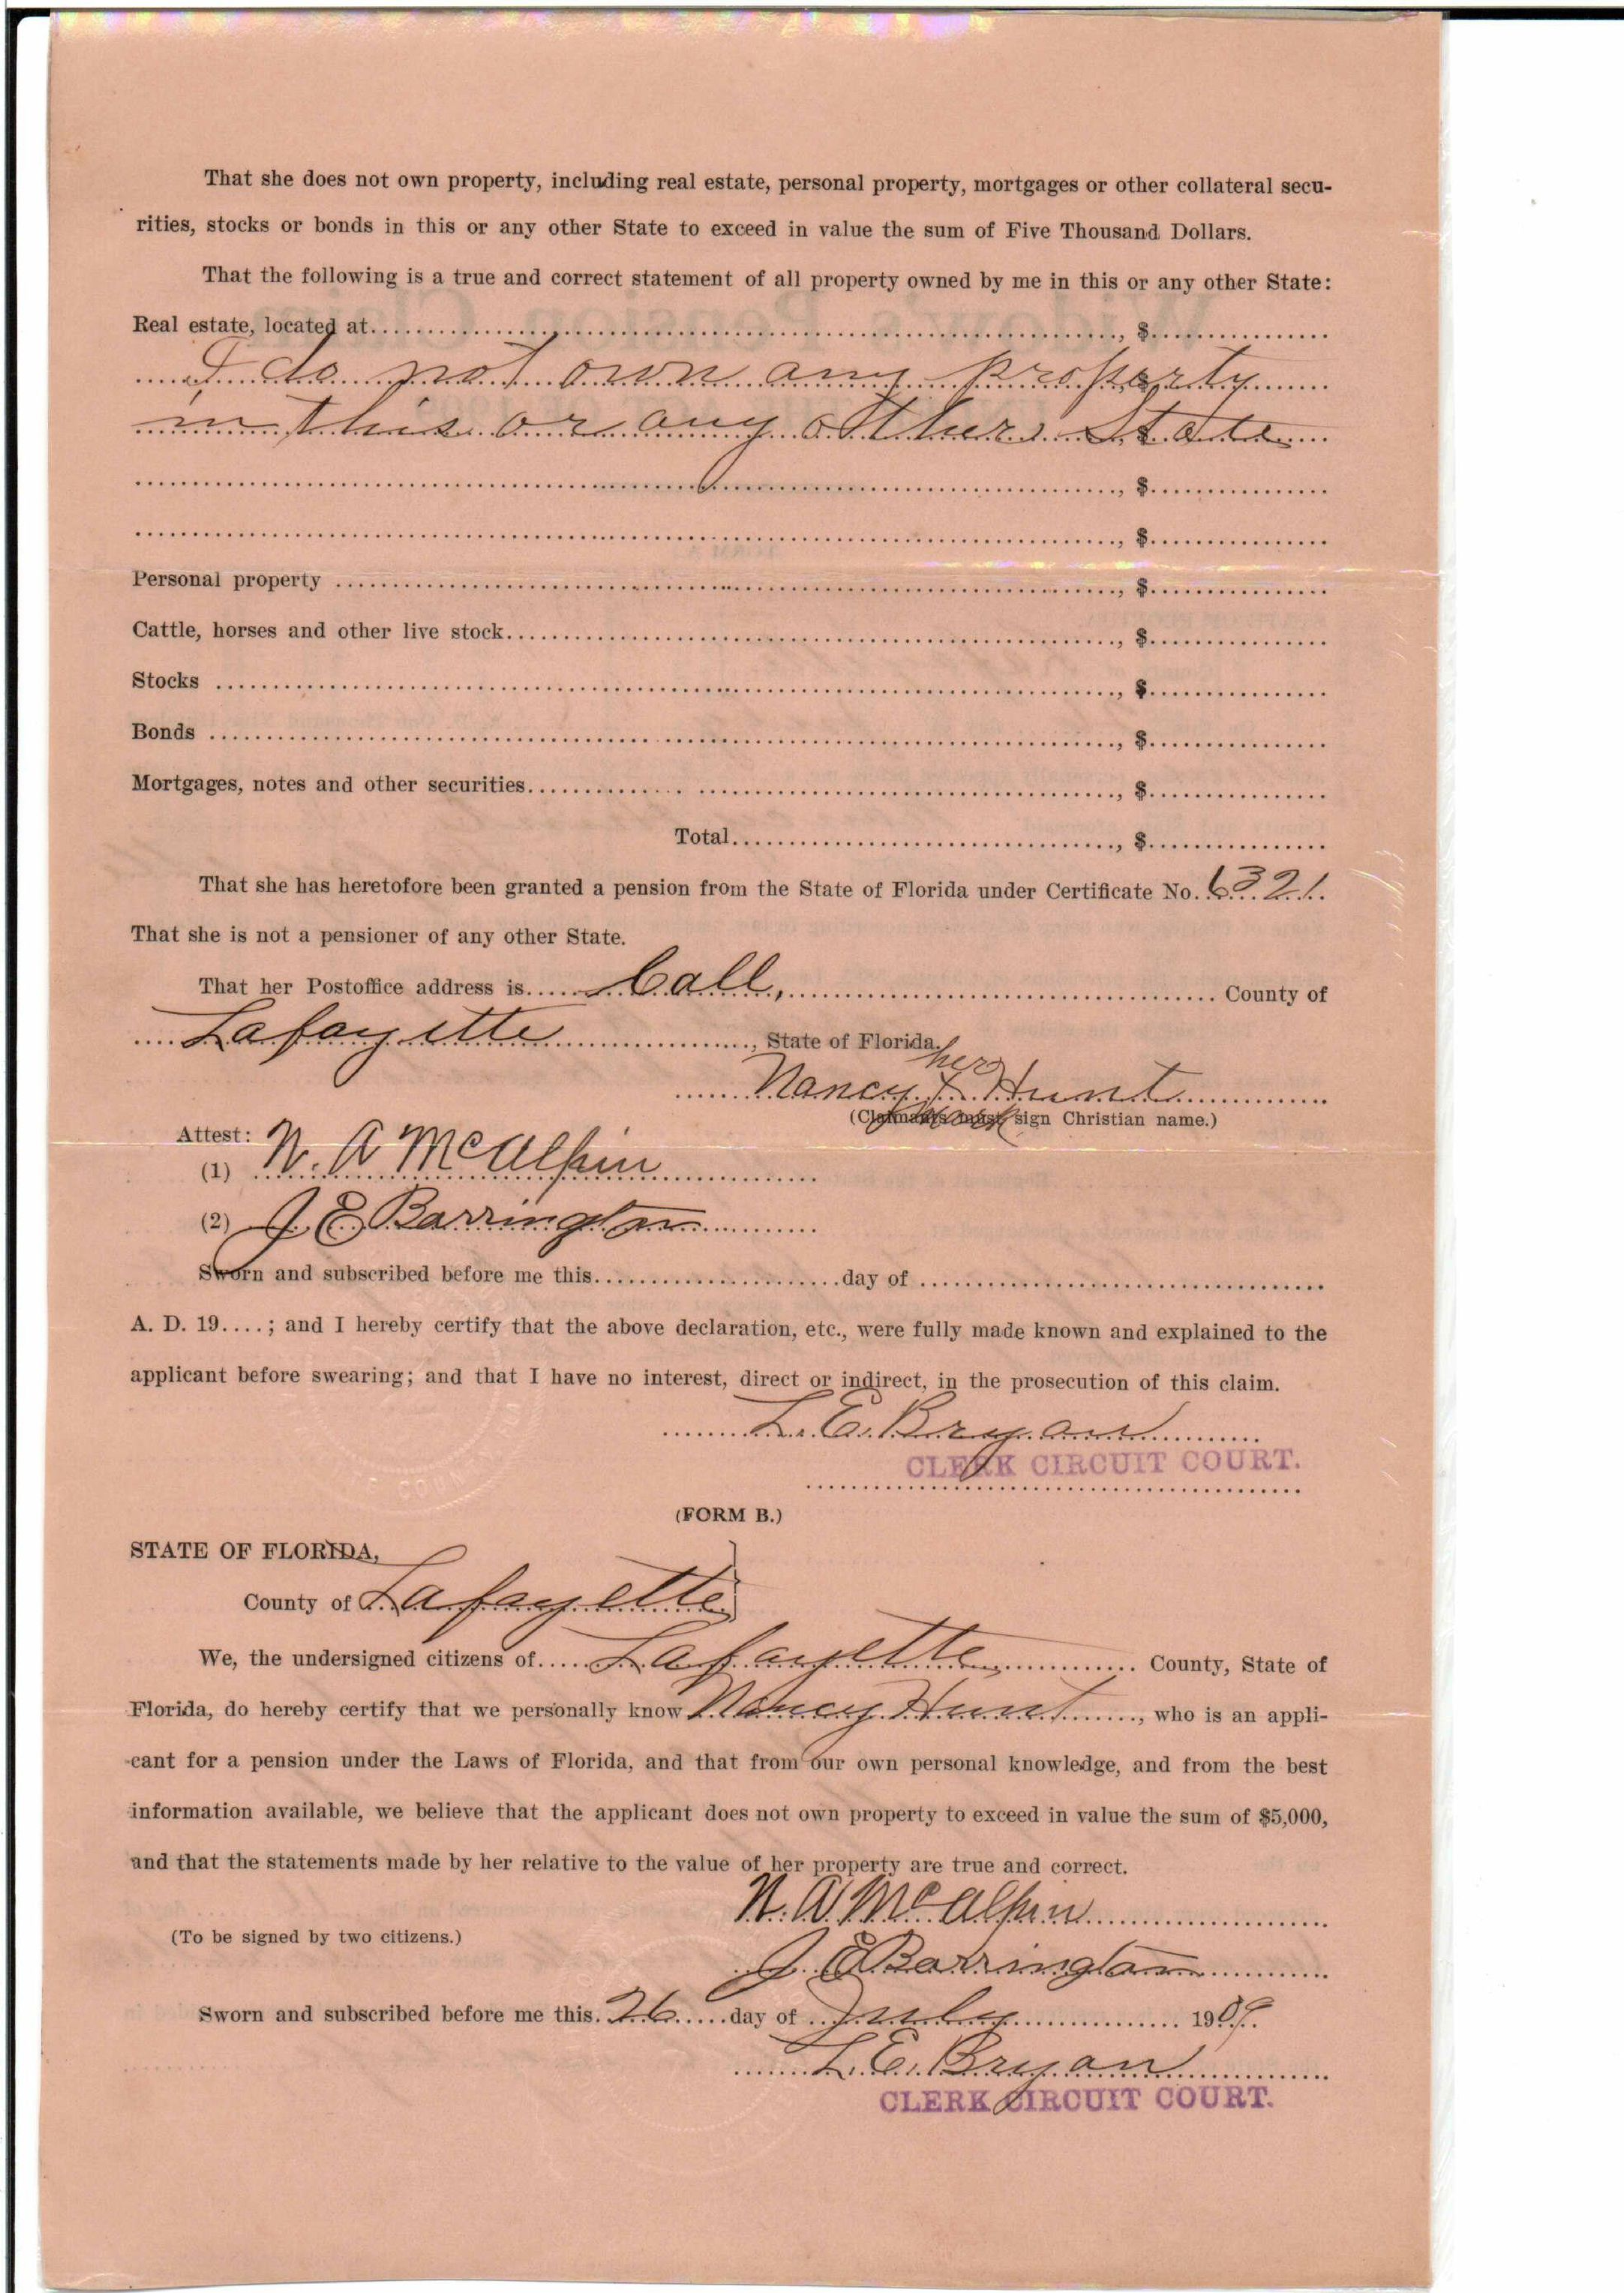 That she does not own property, including real estate, personal property, mortgages or other collateral secu-
rities, stocks or bonds in this or any other State to exceed in value the sum of Five Thousand Dollars.
That the following is a true and correct statement of all property owned by me in this or any other State:
Real estate, located at........, $........
I do not own any property
in this or any other State
........, $........
........, $........
Personal property ........, $........
Cattle, horses and other live stock........, $........
Stocks ........, $........
Bonds ........, $........
Mortgages, notes and other securities........, $........
Total........, $........
That she has heretofore been granted a pension from the State of Florida under Certificate No. 6321.
That she is not a pensioner of any other State.
That her Postoffice address is Call, County of
Lafayette, State of Florida.
her
Nancy X Hunt
mark
(Claimants must sign Christian name.)
Attest:
(1) N. A McAlpin
(2) J E Barrington
Sworn and subscribed before me this........day of ........
A. D. 19....; and I hereby certify that the above declaration, etc., were fully made known and explained to the
applicant before swearing; and that I have no interest, direct or indirect, in the prosecution of this claim.
L. E. Bryan
CLERK CIRCUIT COURT.
(FORM B.)
STATE OF FLORIDA,
County of Lafayette
We, the undersigned citizens of Lafayette County, State of
Florida, do hereby certify that we personally know Nancy Hunt, who is an appli-
cant for a pension under the Laws of Florida, and that from our own personal knowledge, and from the best
information available, we believe that the applicant does not own property to exceed in value the sum of $5,000,
and that the statements made by her relative to the value of her property are true and correct.
N. A. McAlpin
(To be signed by two citizens.)
J. E Barrington
Sworn and subscribed before me this 26 day of July 1909.
L. E. Bryan
CLERK CIRCUIT COURT.